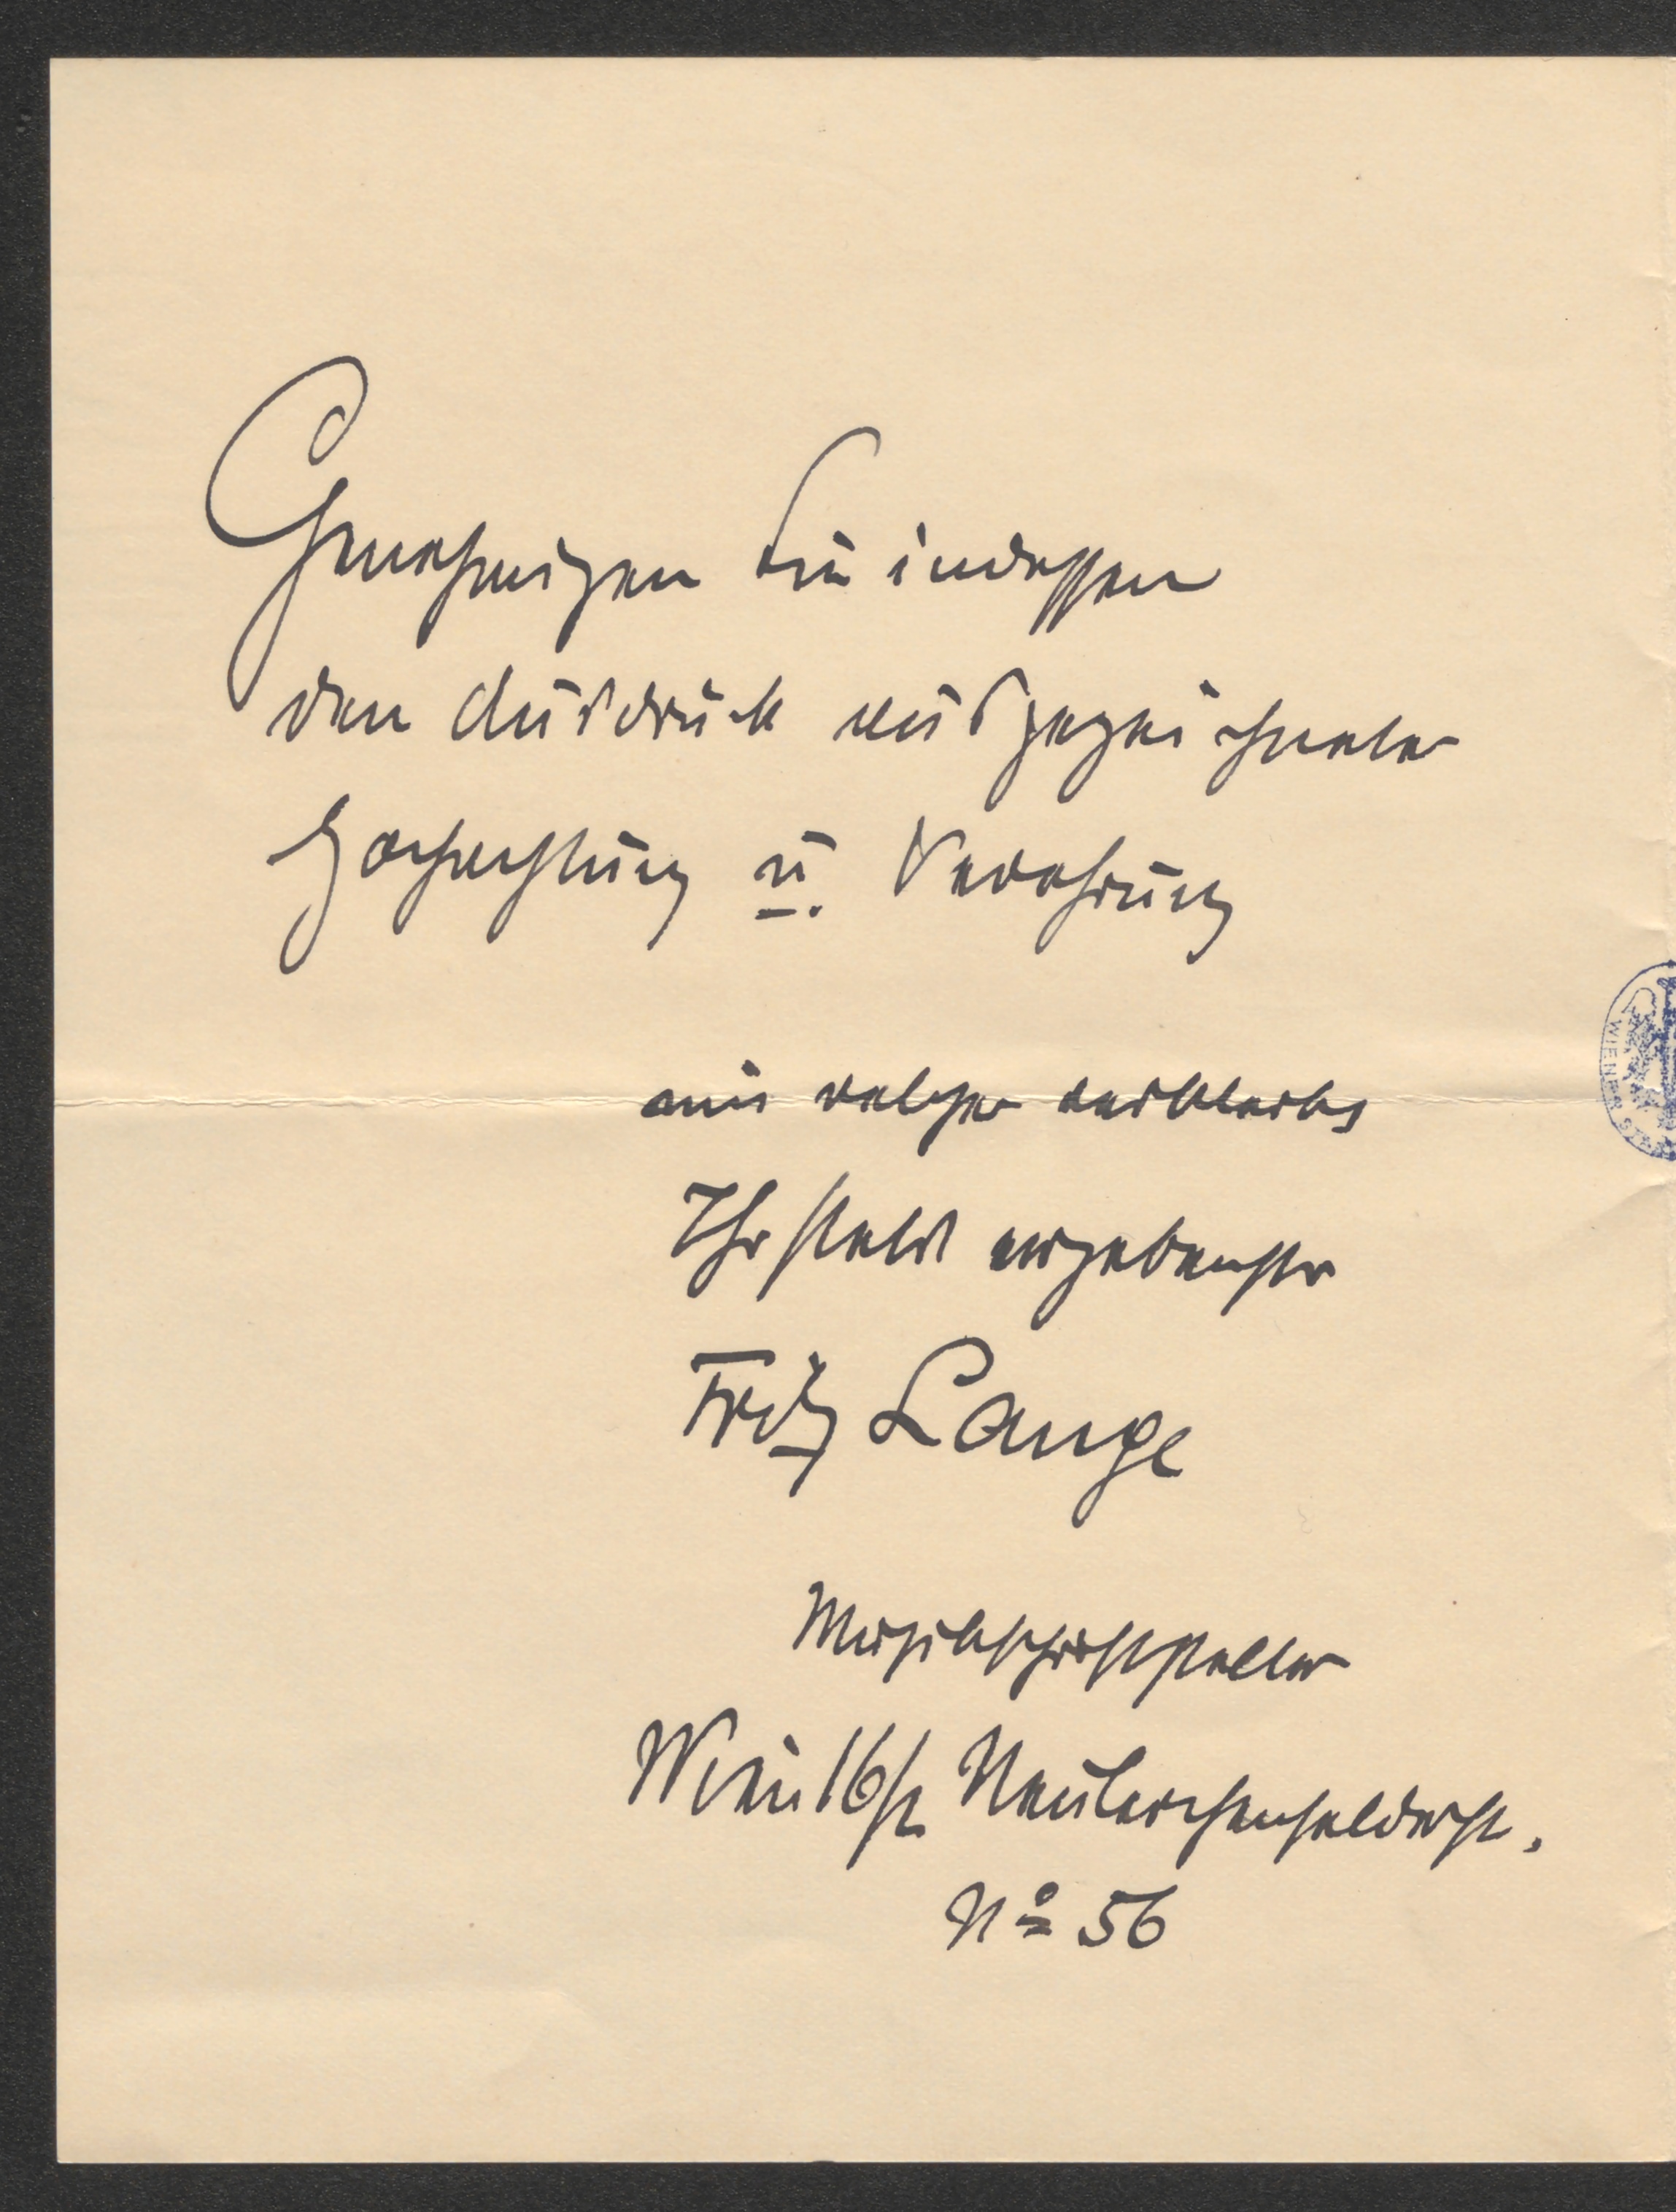 Genehmigen Sie indessen
den Ausdruck ausgezeichneter
Hochachtung u. Verehrung
mit welcher verbleibt
Ihr stets ergebenster
Fritz Lange
Musikschriftsteller
Wien 16/2 Neulerchenfelderst.
No 56
WIENER